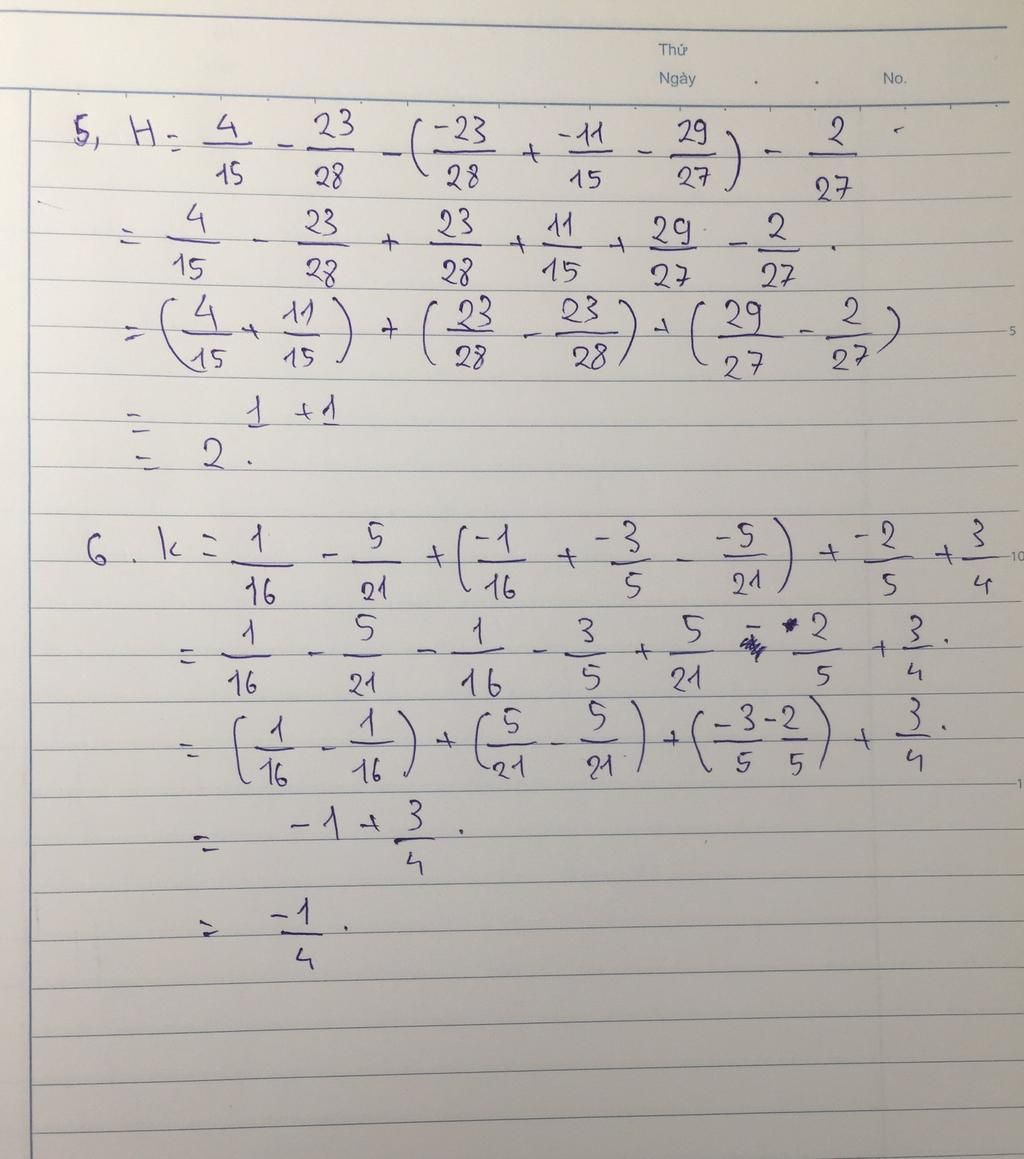 Thứ
Ngày . . No.
5, H = 4/15 - 23/28 - (-23/28 + -11/15 - 29/27) - 2/27
= 4/15 - 23/28 + 23/28 + 11/15 + 29/27 - 2/27.
= (4/15 + 11/15) + (23/28 - 23/28) + (29/27 - 2/27) 5
= 1 + 1
= 2.
6. k = 1/16 - 5/21 + (-1/16 + -3/5 - -5/21) + -2/5 + 3/4 10
= 1/16 - 5/21 - 1/16 - 3/5 + 5/21 - 2/5 + 3/4.
= (1/16 - 1/16) + (5/21 - 5/21) + (-3/5 - 2/5) + 3/4.
= -1 + 3/4.
= -1/4.